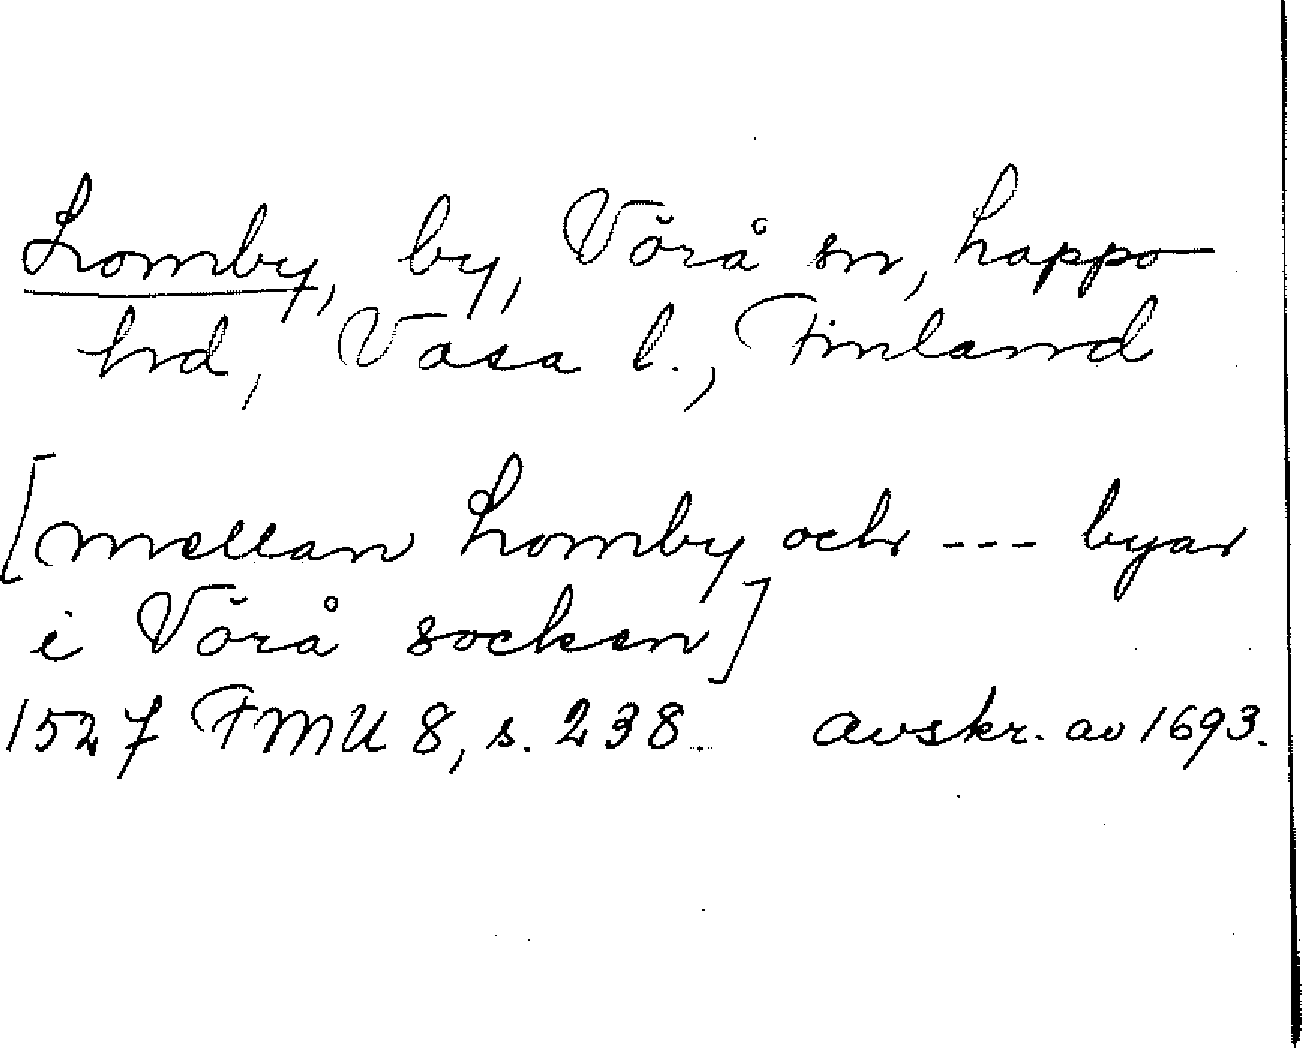 Lomby, by, Vörå sn, Lappo
hrd, Vasa l., Finland
[mellan Lomby och --- byar
i Vörå socken]
1527 FMU 8, s. 238. avskr. av 1693.